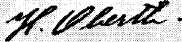 H. Oberth.